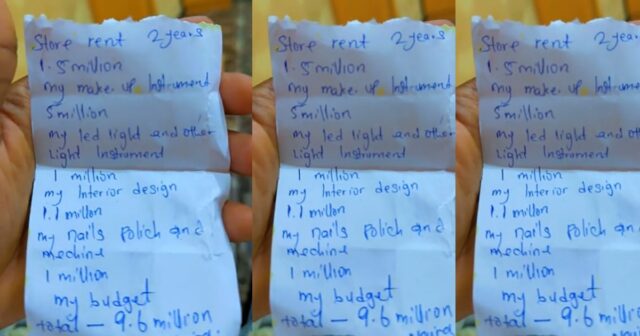 Store rent 2 years
1.5 million
my make up Instrument
5 million
my led light and other
Light Instrument
1 million
my Interior design
1.1 millon
my nails Polich and
mechine
1 million
my budget
total — 9.6 million
Store rent 2 years
1.5 million
my make up Instrument
5 million
my led light and other
Light Instrument
1 million
my Interior design
1.1 millon
my nails Polich and
mechine
1 million
my budget
total — 9.6 million
Store rent 2 years
1.5 million
my make up Instrum
5 million
my led light and oth
Light Instrument
1 million
my Interior design
1.1 millon
my nails Polich an
mechine
1 million
my budget
total — 9.6 million